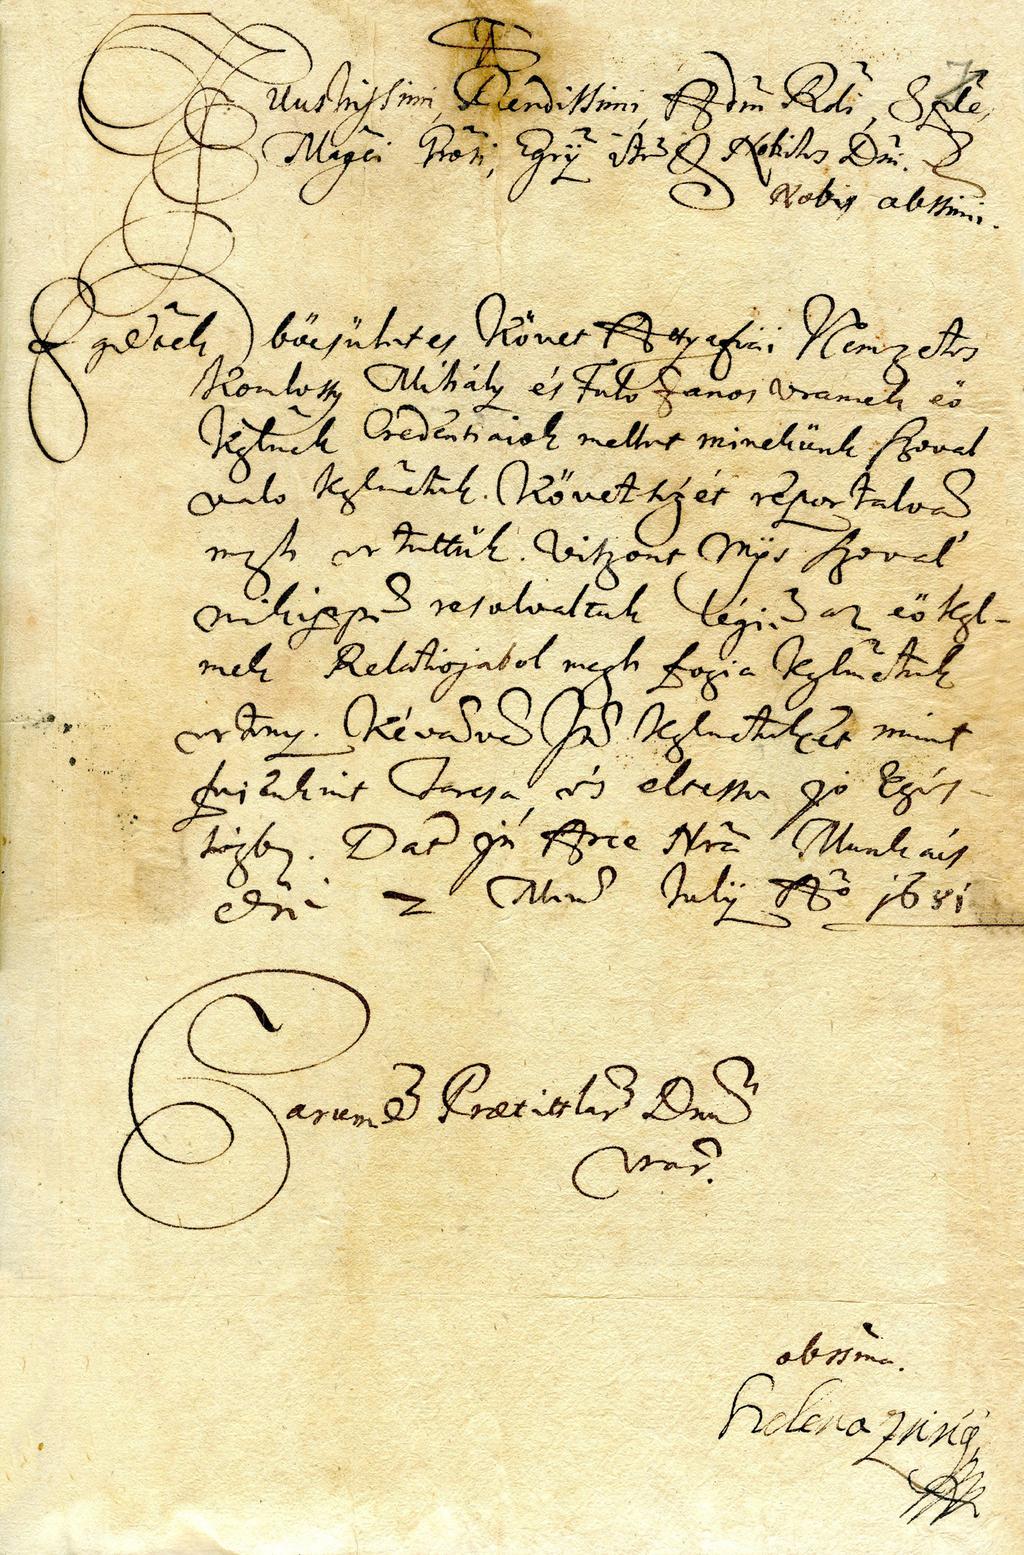 Illustrissimi, Rēndissimi, Adm Rdi, Spl̄e,
Magci Grōsi, Egry Nobiles Dni.
Nobis obssimi.
böcsületes Követ Attyafiai Nemzetes
Komlossy Mihály és Fuló Janos Vramek eö
Kglmek Credentiaiok mellett minekünk szoval
valo kglmetek. Követségét reportalvan
megh értettük. Viszont Mys szoval
miképpen resolvaltuk légien az eö kgl-
mek Relatiojabol megh fogia kglmetek
érteny. Kévanvan Isn kglmeteket mint
fejenkint Tarcsa, és éltesse jó Egés-
ségbe. Dat in Arce Nrā Munkács
die 2 Mens July Ao 1681
earumd Praetitular Dnu
Vrar.
obssma.
Helena Zrini